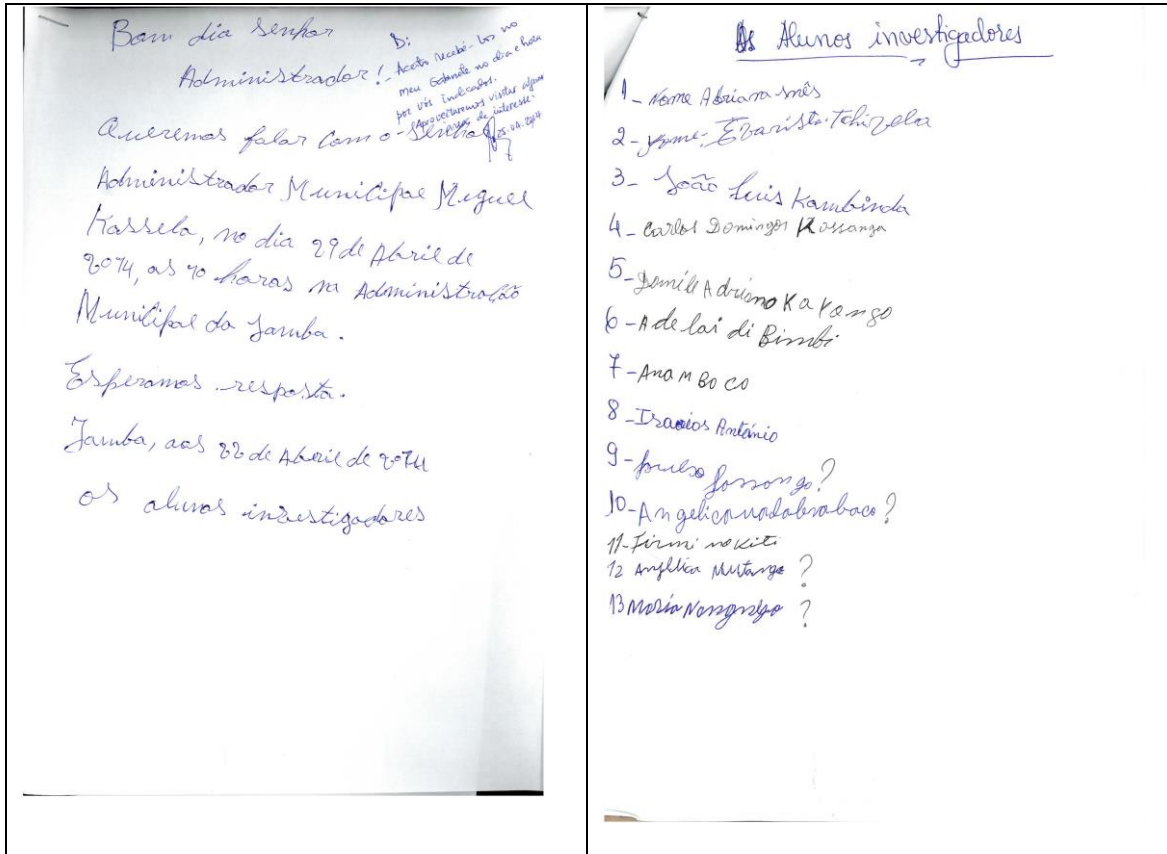 Bom dia Senhor
Administrador!
D:
- Aceito recebê-los no
meu Gabinete no dia e hora
por vós indicados.
Aproveitaremos visitar algumas
áreas de interesse.
25.04.2014
Queremos falar com o Senhor
Administrador Municipal Miguel
Kassela, no dia 29 de Abril de
2014, as 10 horas na Administração
Municipal da Jamba.
Esperamos resposta.
Jamba, aos 22 de Abril de 2014
os alunos investigadores
Os Alunos investigadores
1- Nome Adriana Inês
2- Nome: Evaristo Tchizela
3- João Luis Kambinda
4- Carlos Domingos Kossanga
5- Adriano
6- Adelaidi Bimbi
7- Ana M Boco
8- António
9- ?
10- Angelica ?
11- Firmino Kiti
12 Angélica ?
13 Maria ?